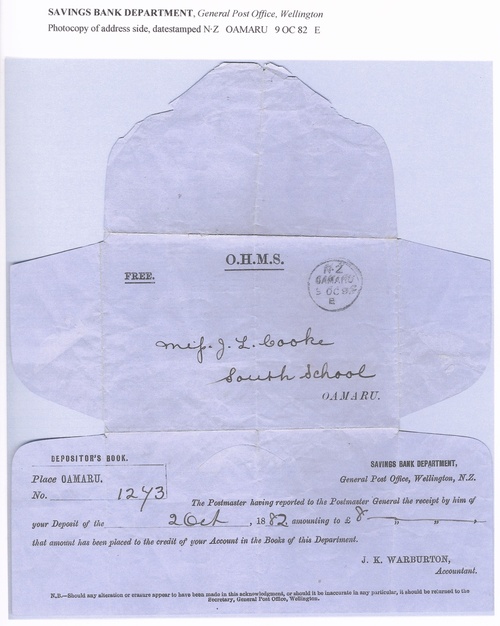 SAVINGS BANK DEPARTMENT, General Post Office, Wellington
Photocopy of address side, datestamped N·Z OAMARU 9 OC 82 E
O.H.M.S.
FREE.
N·Z
OAMARU
9 OC 82
E
Miss. J. L. Cooke
South School
OAMARU.
DEPOSITOR'S BOOK.
Place OAMARU.
No. 1273
SAVINGS BANK DEPARTMENT,
General Post Office, Wellington, N.Z.
The Postmaster having reported to the Postmaster General the receipt by him of
your Deposit of the 2 Oct, 1882 amounting to £ 8 - „ „
that amount has been placed to the credit of your Account in the Books of this Department.
J. K. WARBURTON,
Accountant.
N.B.—Should any alteration or erasure appear to have been made in this acknowledgment, or should it be inaccurate in any particular, it should be returned to the
Secretary, General Post Office, Wellington.